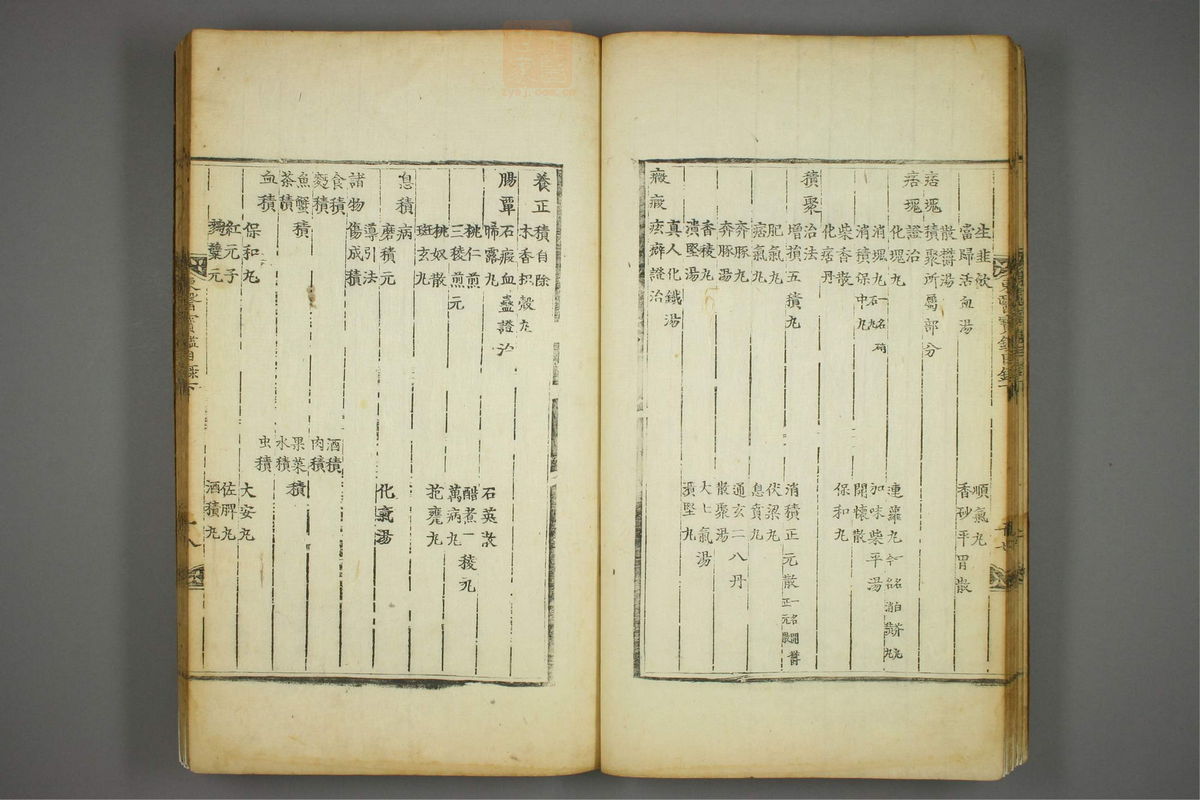 生韭飮 順氣丸
當歸活血湯 香砂平胃散
散鬱湯
痞塊積聚所屬部分
痞塊證治
化塊丸 連蘿丸
消塊丸一名硝石丸 加味柴平湯
消積保中丸 開懷散
柴香散 保和丸
化痞丹
積聚治法
增損五積丸 消積正元散一名開鬱正元散
肥氣丸 伏梁丸
痞氣丸 息賁丸
奔豚丸 通玄二八丹
奔豚湯 散聚湯
香稜丸 大七氣湯
潰堅湯 潰堅丸
眞人化鐵湯
癥瘕痃癖證治
東醫寶鑑目錄下
養正積自除
木香枳殼丸
腸覃石瘕血蠱證治
晞露丸 石英散
桃仁煎 醋煮三稜丸
三稜煎元 萬病丸
桃奴散
斑玄丸
息積病
磨積元 化氣湯
導引法
諸物傷成積
食積 酒積
麪積 肉積
魚蟹積 果菜積
茶積 水積
血積 虫積
保和丸 大安丸
紅元子 佐脾丸
麴蘖元 酒積丸
東醫寶鑑目錄下